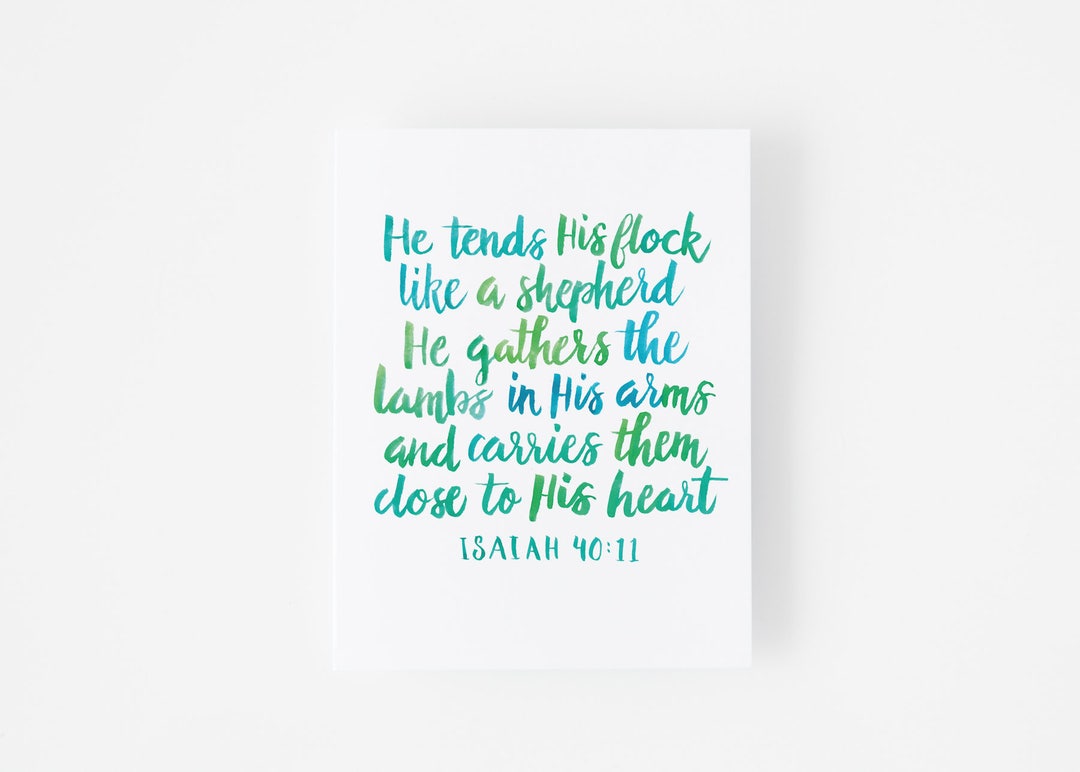 He tends His flock
like a shepherd
He gathers the
lambs in His arms
and carries them
close to His heart
ISAIAH 40:11